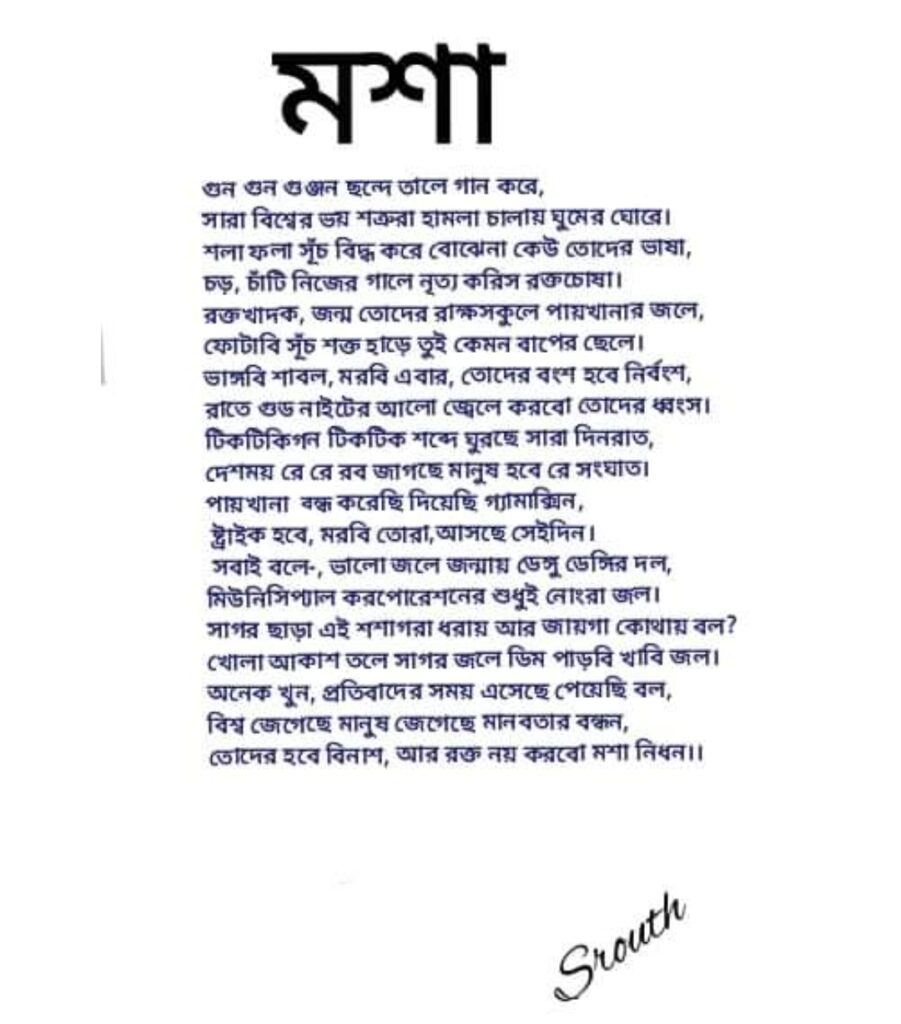 মশা
গুন গুন গুঞ্জন ছন্দে তালে গান করে,
সারা বিশ্বের ভয় শত্রুরা হামলা চালায় ঘুমের ঘোরে।
শলা ফলা সূঁচ বিদ্ধ করে বোঝেনা কেউ তোদের ভাষা,
চড়, চাঁটি নিজের গালে নৃত্য করিস রক্তচোষা।
রক্তখাদক, জন্ম তোদের রাক্ষসকুলে পায়খানার জলে,
ফোটাবি সূঁচ শক্ত হাড়ে তুই কেমন বাপের ছেলে।
ভাঙ্গবি শাবল, মরবি এবার, তোদের বংশ হবে নির্বংশ,
রাতে গুড নাইটের আলো জ্বেলে করবো তোদের ধ্বংস।
টিকটিকিগন টিকটিক শব্দে ঘুরছে সারা দিনরাত,
দেশময় রে রে রব জাগছে মানুষ হবে রে সংঘাত।
পায়খানা বন্ধ করেছি দিয়েছি গ্যামাক্সিন,
ষ্ট্রাইক হবে, মরবি তোরা,আসছে সেইদিন।
সবাই বলে-, ভালো জলে জন্মায় ডেঙ্গু ডেঙ্গির দল,
মিউনিসিপ্যাল করপোরেশনের শুধুই নোংরা জল।
সাগর ছাড়া এই শশাগরা ধরায় আর জায়গা কোথায় বল?
খোলা আকাশ তলে সাগর জলে ডিম পাড়বি খাবি জল।
অনেক খুন, প্রতিবাদের সময় এসেছে পেয়েছি বল,
বিশ্ব জেগেছে মানুষ জেগেছে মানবতার বন্ধন,
তোদের হবে বিনাশ, আর রক্ত নয় করবো মশা নিধন।।
Srouth